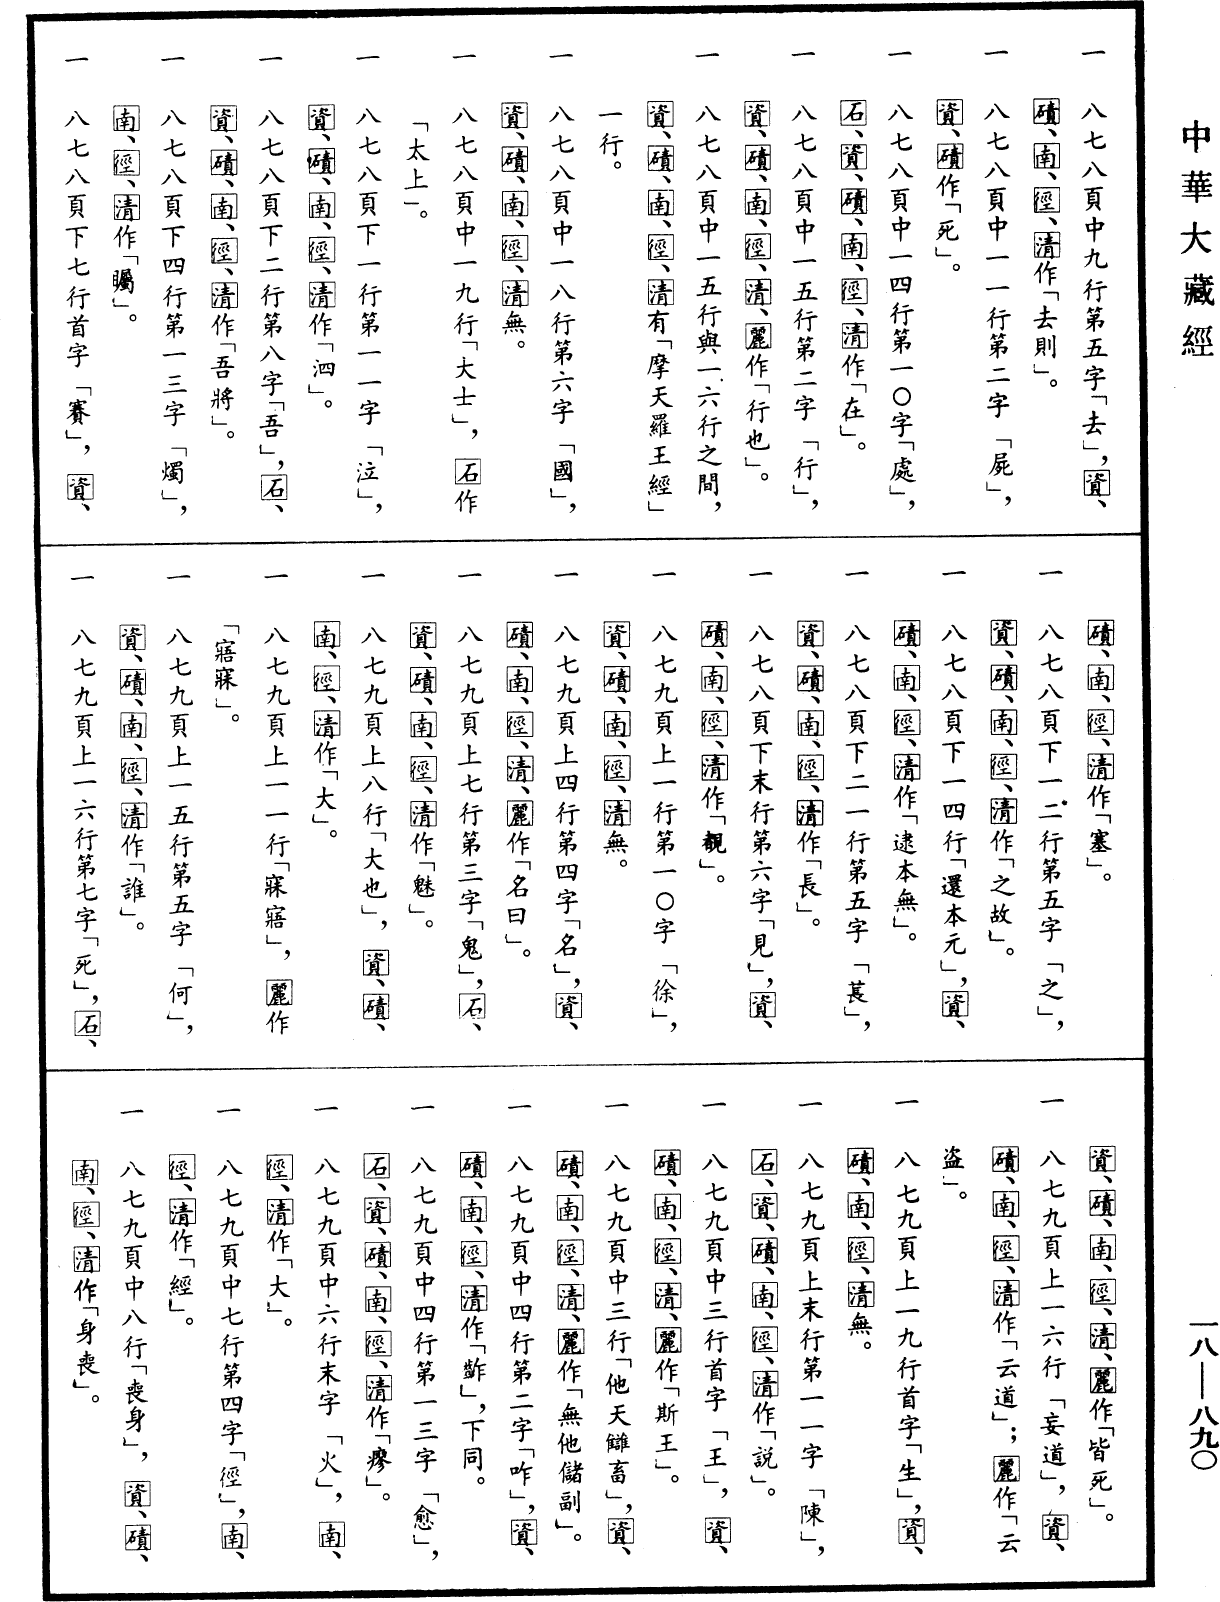 中華大藏經
一 八七八頁中九行第五字「去」，資、
磧、南、徑、清作「去則」。
一 八七八頁中一一行第二字「屍」，
資、磧作「死」。
一 八七八頁中一四行第一〇字「處」，
石、資、磧、南、徑、清作「在」。
一 八七八頁中一五行第二字「行」，
資、磧、南、徑、清、麗作「行也」。
一 八七八頁中一五行與一六行之間，
資、磧、南、徑、清有「摩天羅王經」
一行。
一 八七八頁中一八行第六字「國」，
資、磧、南、徑、清無。
一 八七八頁中一九行「大士」，石作
「太上」。
一 八七八頁下一行第一一字「泣」，
資、磧、南、徑、清作「泗」。
一 八七八頁下二行第八字「吾」，石、
資、磧、南、徑、清作「吾將」。
一 八七八頁下四行第一三字「燭」，
南、徑、清作「矚」。
一 八七八頁下七行首字「賽」，資、
磧、南、徑、清作「塞」。
一 八七八頁下一二行第五字「之」，
資、磧、南、徑、清作「之故」。
一 八七八頁下一四行「還本元」，資、
磧、南、徑、清作「逮本無」。
一 八七八頁下二一行第五字「萇」，
資、磧、南、徑、清作「長」。
一 八七八頁下末行第六字「見」，資、
磧、南、徑、清作「覩」。
一 八七九頁上一行第一〇字「徐」，
資、磧、南、徑、清無。
一 八七九頁上四行第四字「名」，資、
磧、南、徑、清、麗作「名曰」。
一 八七九頁上七行第三字「鬼」，石、
資、磧、南、徑、清作「魅」。
一 八七九頁上八行「大也」，資、磧、
南、徑、清作「大」。
一 八七九頁上一一行「寐寤」，麗作
「寤寐」。
一 八七九頁上一五行第五字「何」，
資、磧、南、徑、清作「誰」。
一 八七九頁上一六行第七字「死」，石、
資、磧、南、徑、清、麗作「皆死」。
一 八七九頁上一六行「妄道」，資、
磧、南、徑、清作「云道」；麗作「云
盜」。
一 八七九頁上一九行首字「生」，資、
磧、南、徑、清無。
一 八七九頁上末行第一一字「陳」，
石、資、磧、南、徑、清作「説」。
一 八七九頁中三行首字「王」，資、
磧、南、徑、清、麗作「斯王」。
一 八七九頁中三行「他天讎畜」，資、
磧、南、徑、清、麗作「無他儲副」。
一 八七九頁中四行第二字「咋」，資、
磧、南、徑、清作「齚」，下同。
一 八七九頁中四行第一三字「愈」，
石、資、磧、南、徑、清作「瘳」。
一 八七九頁中六行末字「火」，南、
徑、清作「大」。
一 八七九頁中七行第四字「徑」，南、
徑、清作「經」。
一 八七九頁中八行「喪身」，資、磧、
南、徑、清作「身喪」。
一八—八九〇